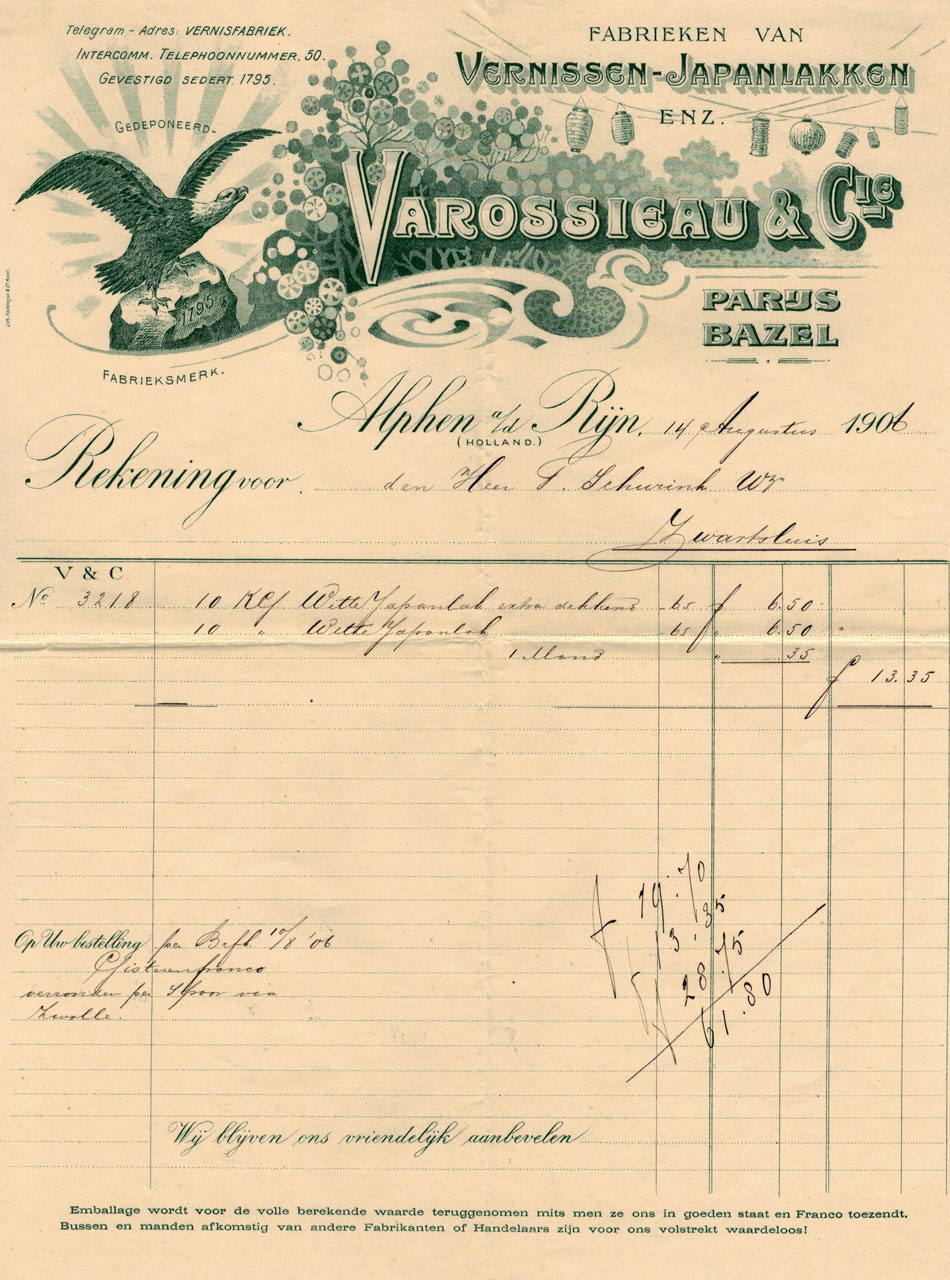 Telegram - Adres: VERNISFABRIEK.
INTERCOMM. TELEPHOONNUMMER, 50.
GEVESTIGD SEDERT 1795.
GEDEPONEERD.
1795
FABRIEKSMERK.
FABRIEKEN VAN
VERNISSEN-JAPANLAKKEN
ENZ.
VAROSSIEAU & CIE
PARIJS
BAZEL
Alphen a/d Rijn, 14 Augustus 1906
(HOLLAND.)
Rekening voor den Heer Schurink Wz
Zwartsluis
V & C
No 3218 10 Witte Japanlak extra dekkend 65 f 6.50
10 " Witte Japanlak 65 " 6.50
1 Mand " 35
f 13.35
f 19.70
13.35
28.75
61.80
Op Uw bestelling per 10/8 '06
franco
verzonden per Spoor via
Zwolle.
Wij blijven ons vriendelijk aanbevelen
Emballage wordt voor de volle berekende waarde teruggenomen mits men ze ons in goeden staat en Franco toezendt.
Bussen en manden afkomstig van andere Fabrikanten of Handelaars zijn voor ons volstrekt waardeloos!